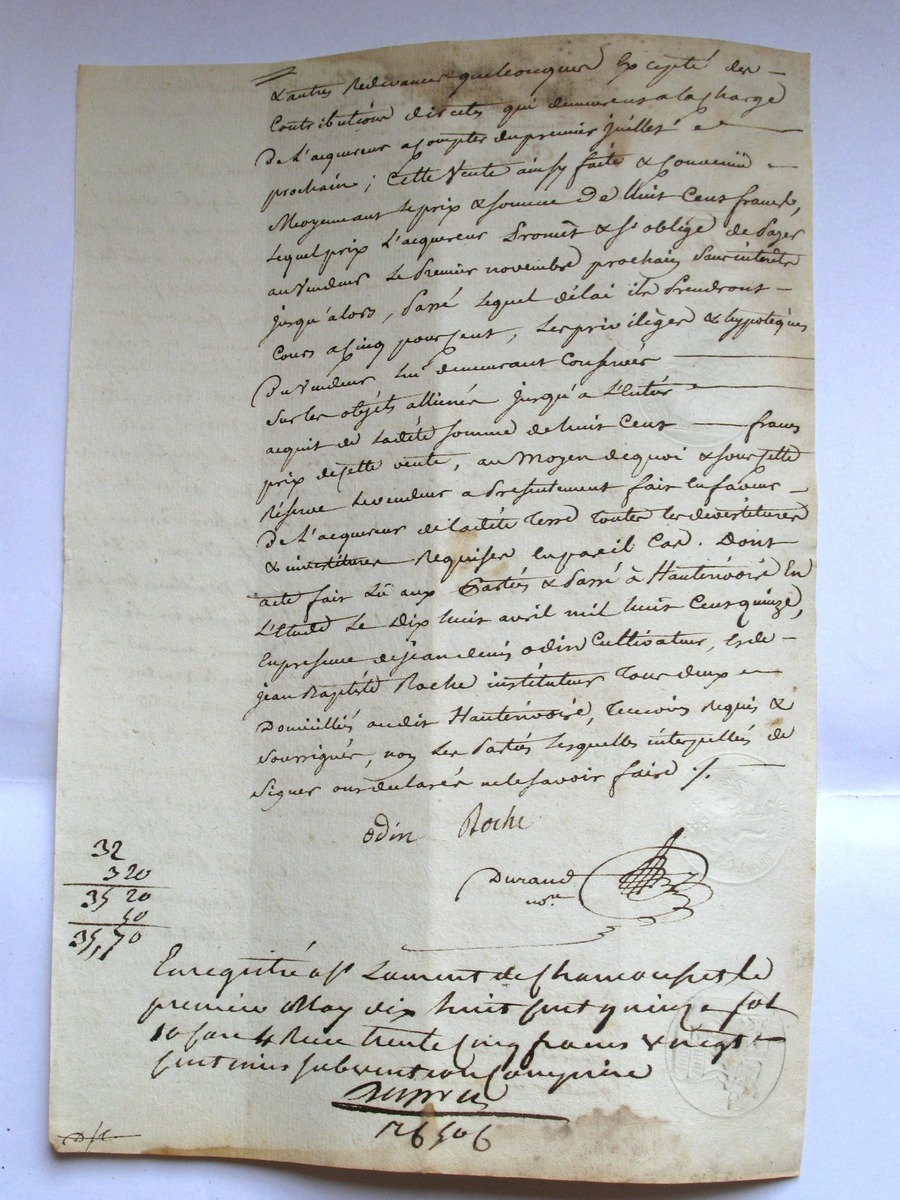 & autres Redevances quelconques Excepté des —
Contributions directes qui demeurent a la charge
De L'acquereur a compter du premier juillet —
prochain ; Cette Vente ainsy faite & Convenue —
Moyennant le prix & somme De huit Cent francs,
Lequel prix L'acquereur Promet & s'oblige de Payer
au Vendeur Le Premier novembre prochain Sans interets
jusqu'alors, Passé Lequel délai ils Prendront —
Cours a Cinq pour Cent, Les privilèges & hypotèques
Du Vendeur lui demeurant Conservés —
Sur les objets alliénés jusqu'a L'Entier —
acquit de Ladite somme de huit Cent — francs
prix de Cette vente, au Moyen de quoi & sous Cette
Réserve Le vendeur a Présentement fait En faveur —
De L'acquereur de Ladite Terre Toutes les devestitures
& investitures Requises En pareil Cas. Dont
acte fait Lû aux Parties & Passé à Hauterivoire En
L'Etude Le Dix huit avril mil huit Cent quinze,
En presence de jean denis odin Cultivateur, & de —
jean Baptiste Roche instituteur Tous deux —
Domicilliés audit Hauterivoire, Temoins Requis &
Soussignés, non Les Parties Lesquelles interpellées de
Signer ont déclarés ne le savoir faire ./.
odin Roche
Durand
nore
32
3 20
35 20
50
35,70
Enregistré a St Laurent de Chamousset le
premier May dix huit cent quinze fol
10 case 4 Reçu trente cinq francs & vingt
centimes subvention Comprise